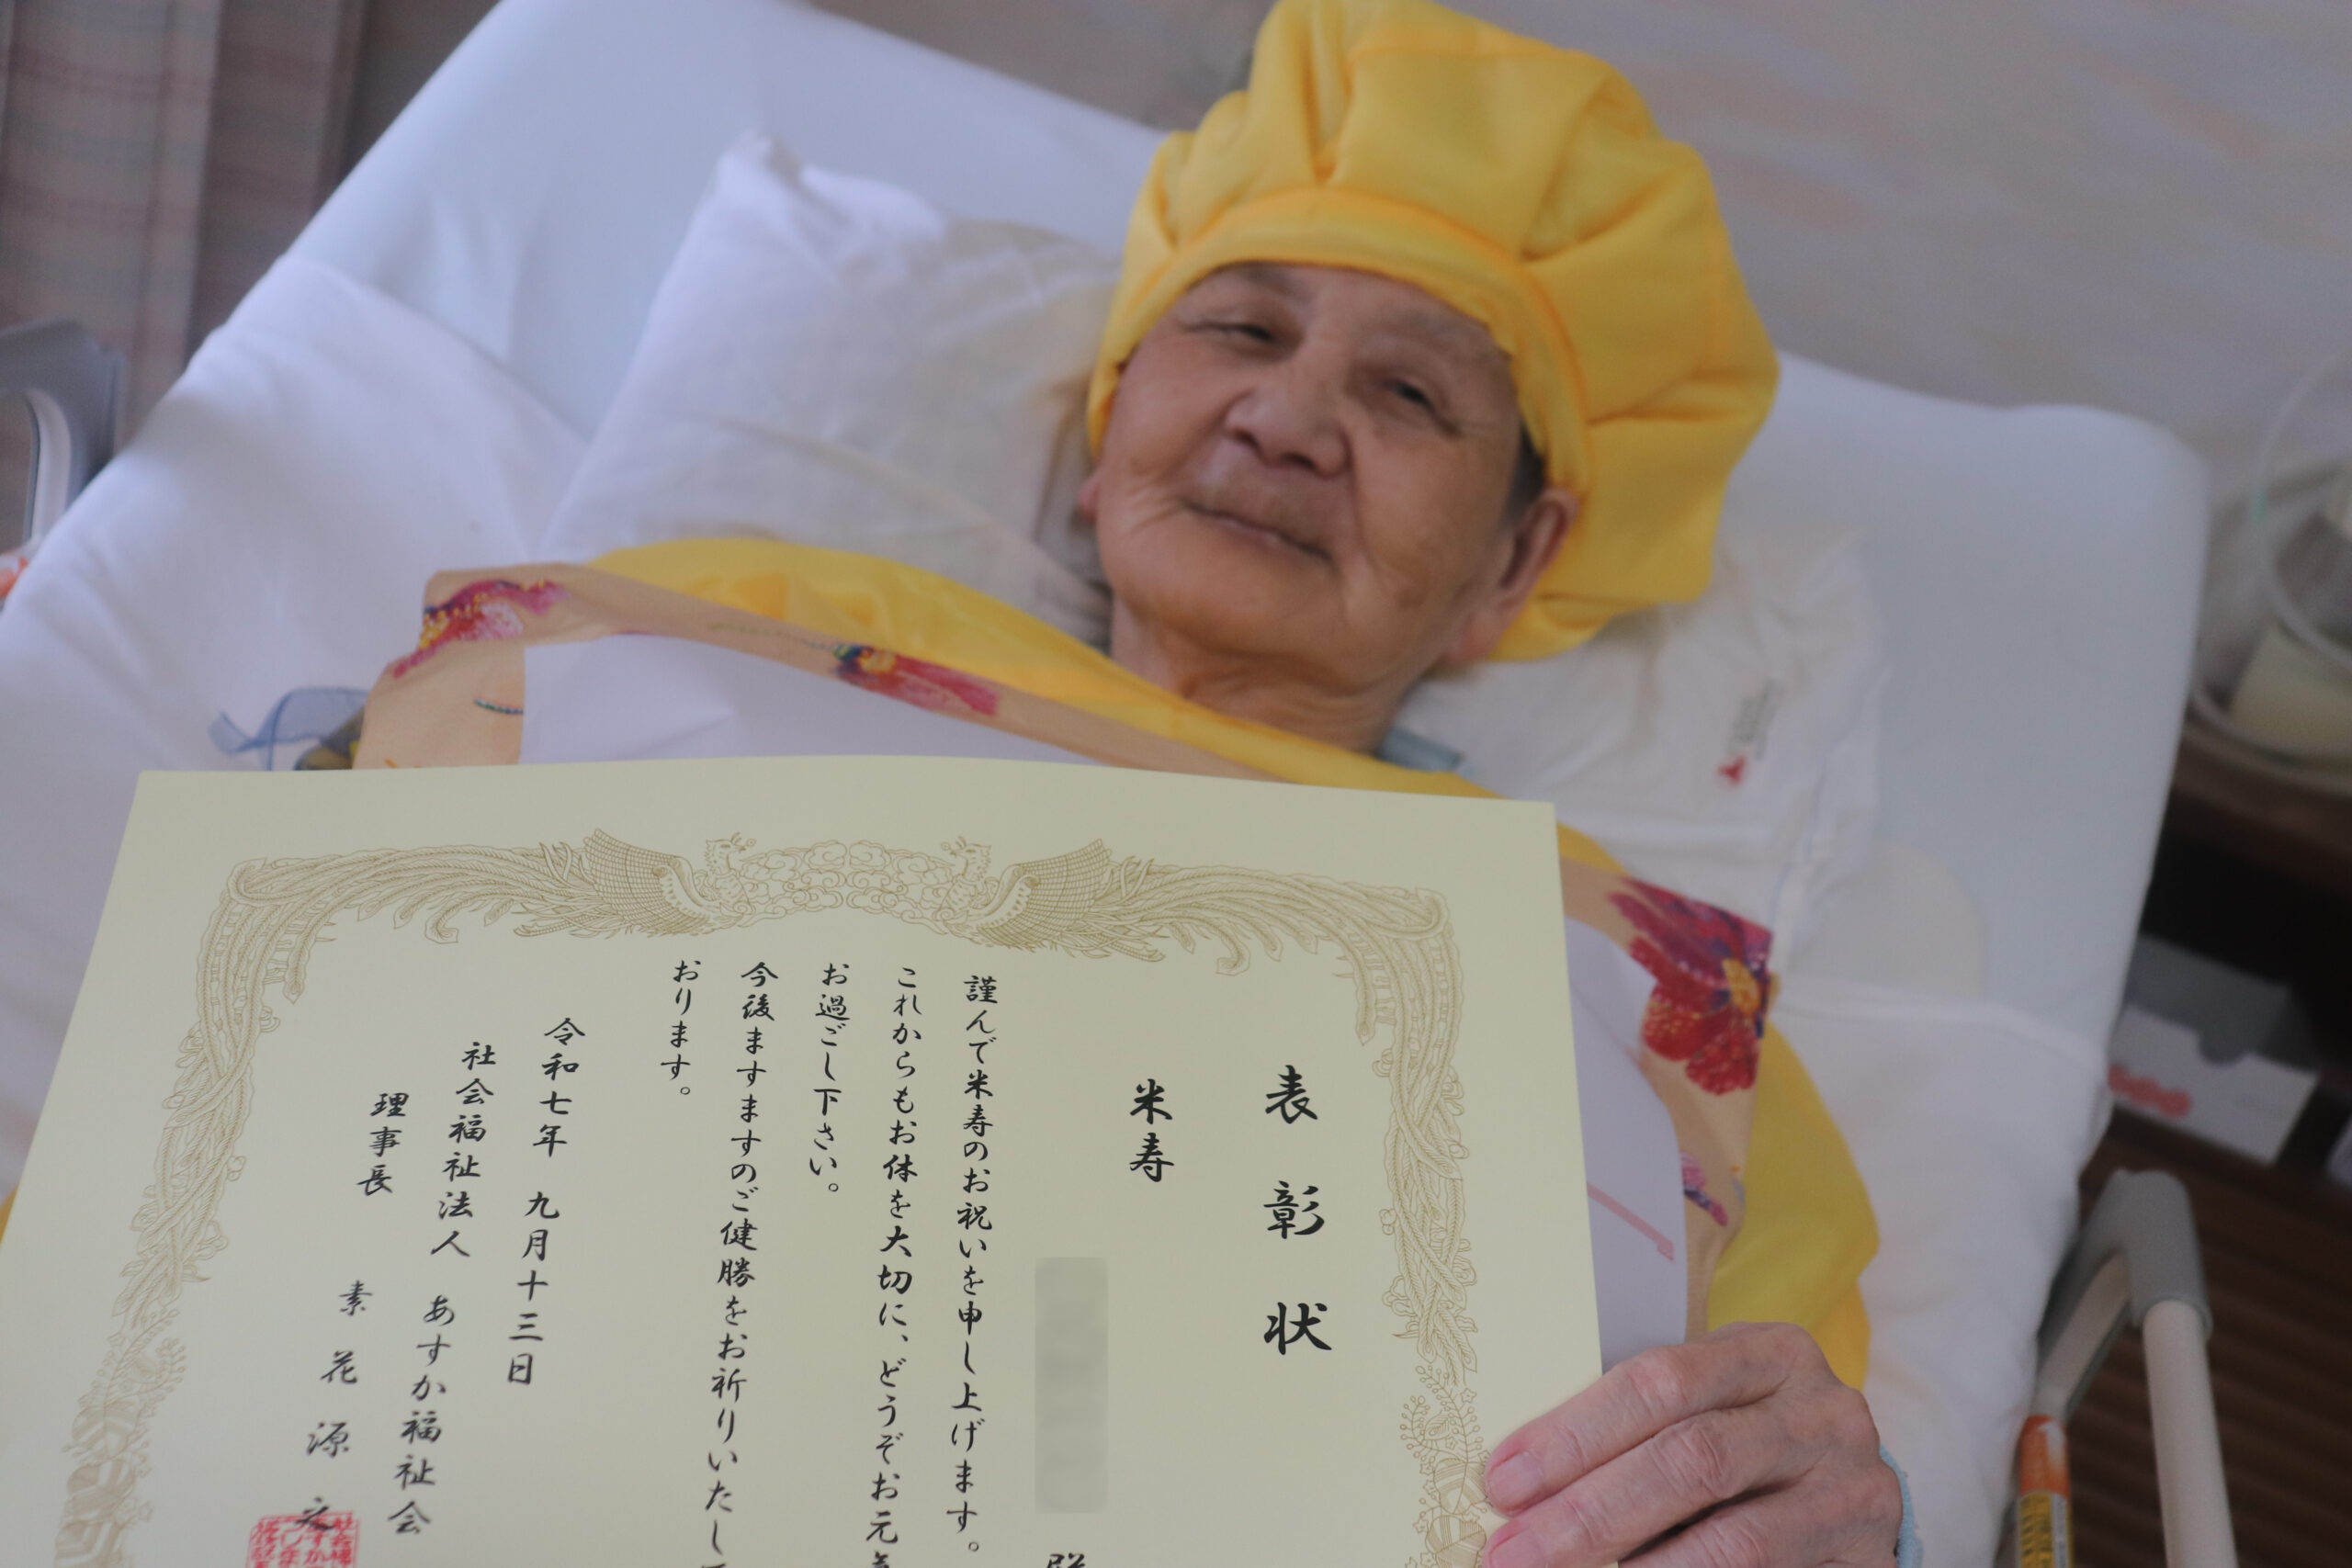 表彰状
米寿
殿
謹んで米寿のお祝いを申し上げます。
これからもお体を大切に、どうぞお元気
お過ごし下さい。
今後ますますのご健勝をお祈りいたし
おります。
令和七年 九月十三日
社会福祉法人 あすか福祉会
理事長 素花源之